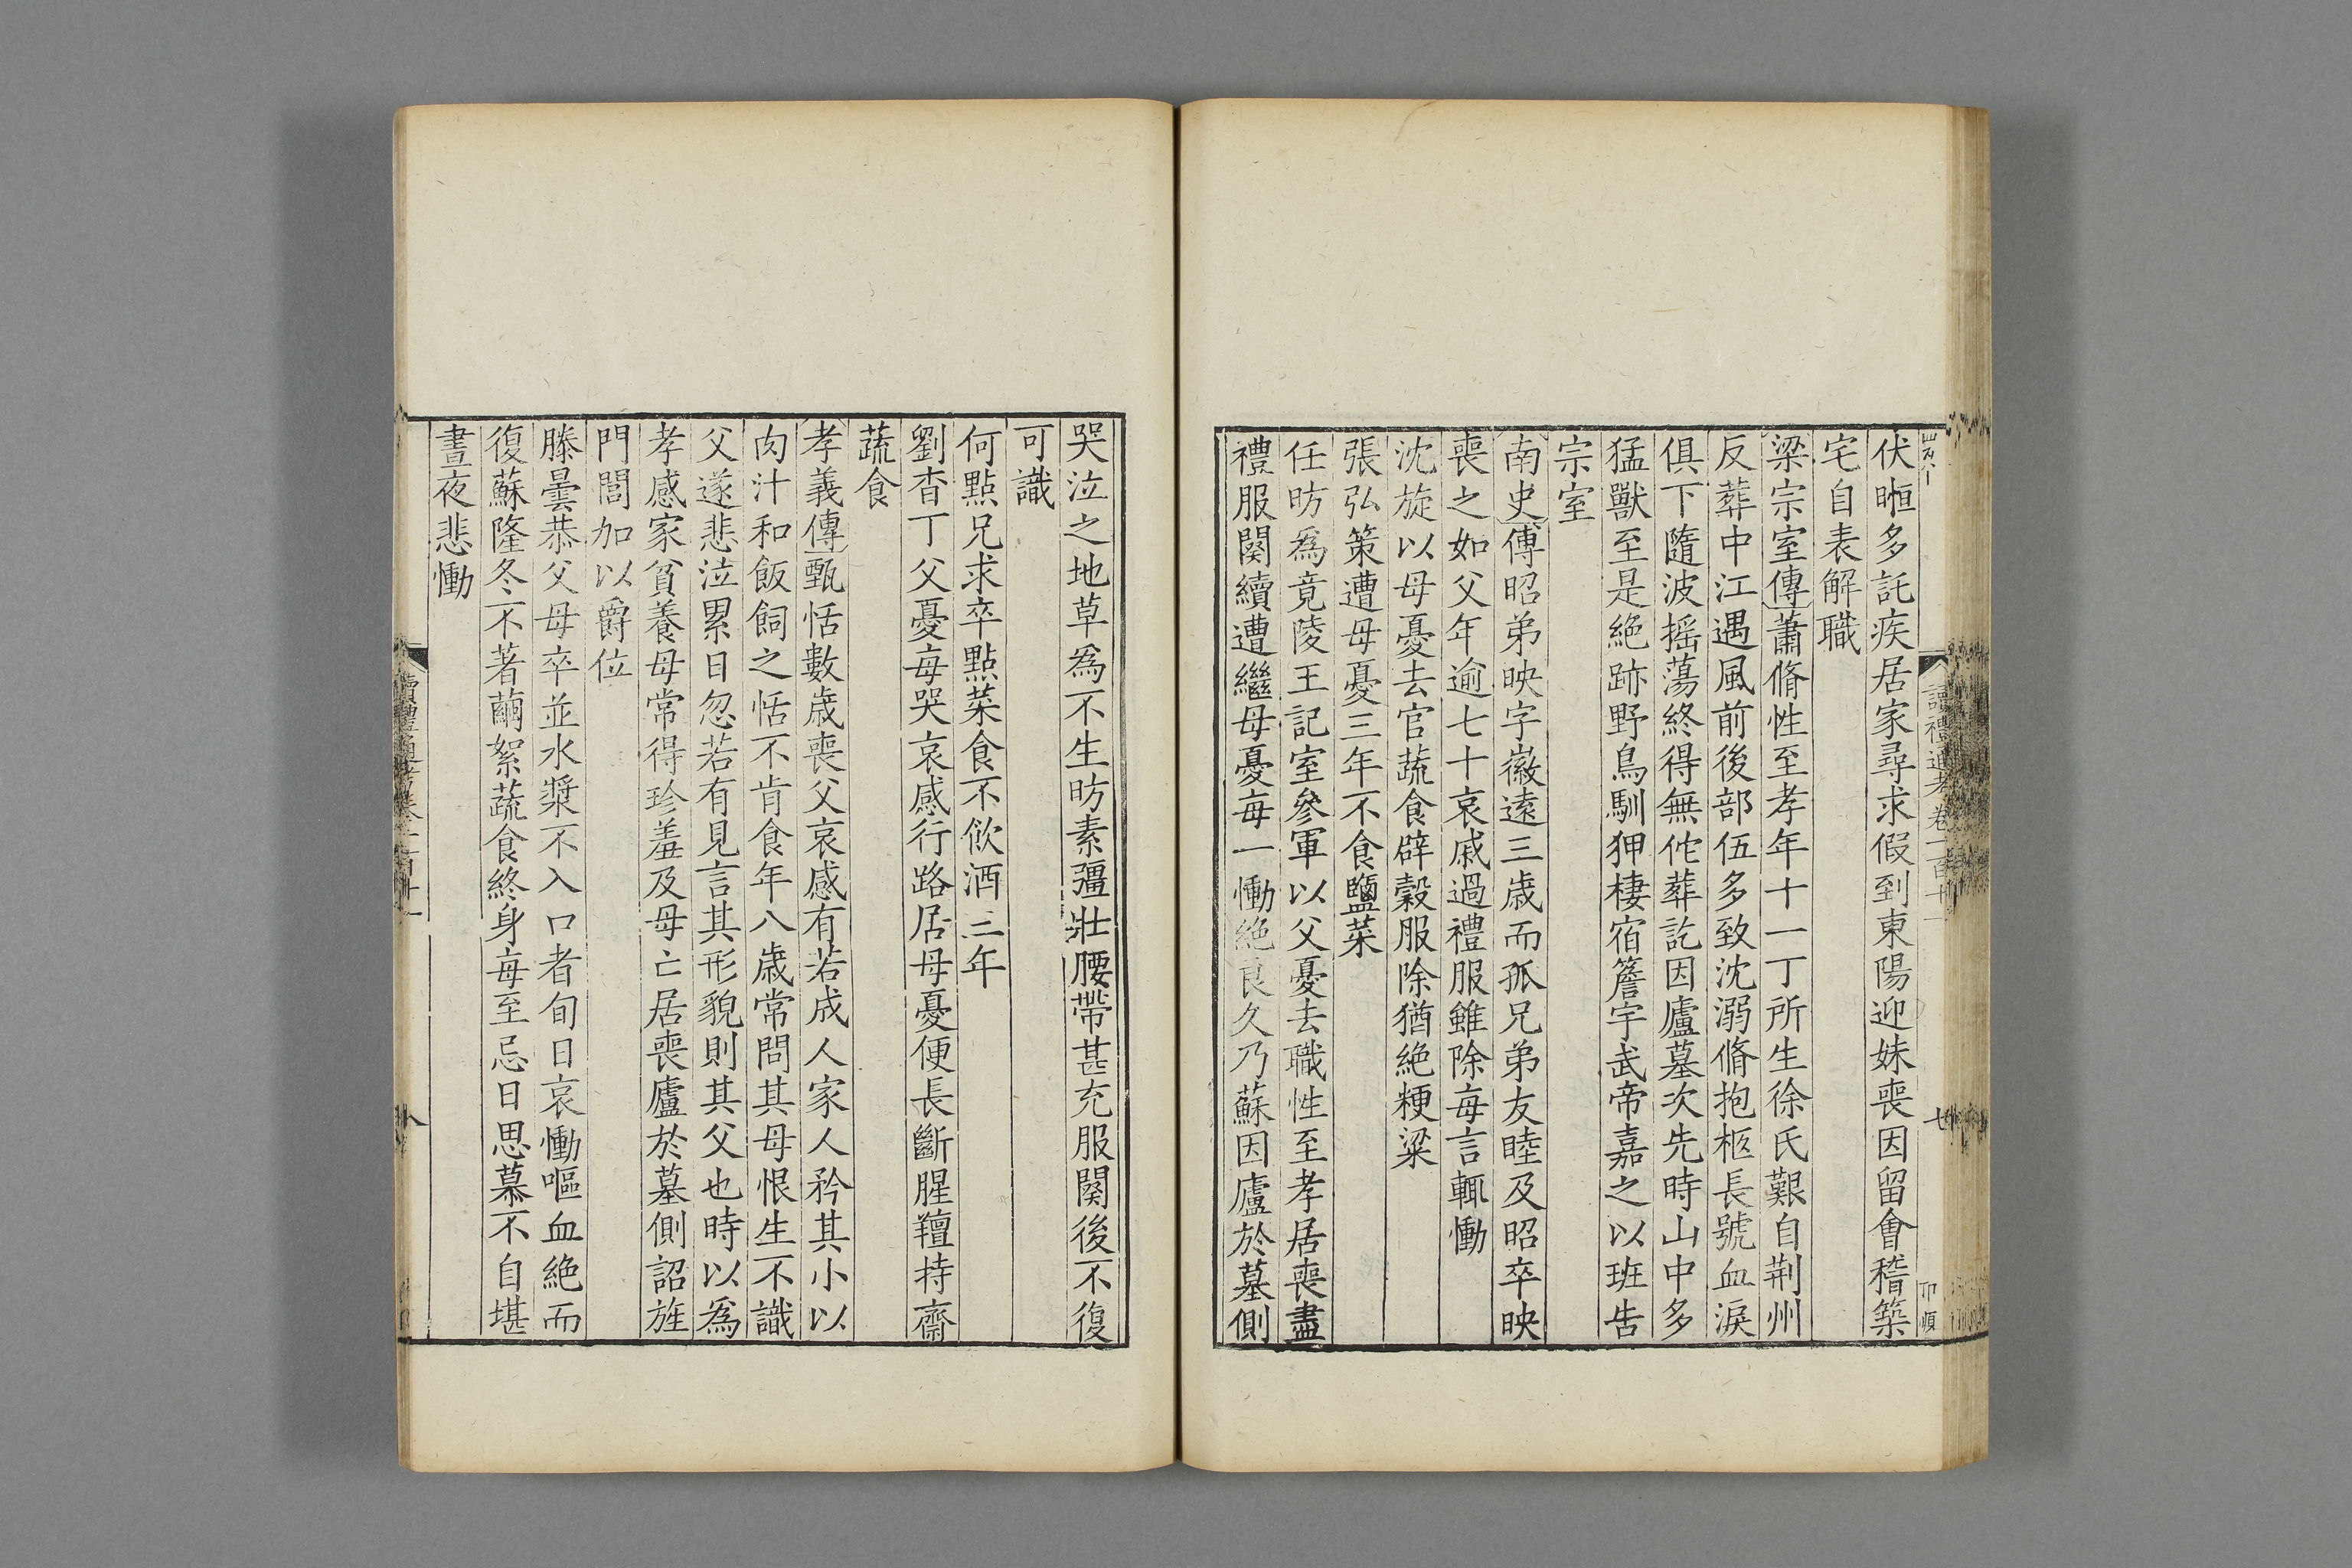 伏暅多託疾居家尋求假到東陽迎妹喪因留會稽築
宅自表解職
梁宗室傳蕭脩性至孝年十一丁所生徐氏艱自荆州
反葬中江遇風前後部伍多致沈溺脩抱柩長號血淚
俱下隨波摇蕩終得無佗葬訖因廬墓次先時山中多
猛獸至是絶跡野鳥馴狎棲宿簷宇武帝嘉之以班告
宗室
南史傅昭弟映字徽遠三歲而孤兄弟友睦及昭卒映
喪之如父年逾七十哀戚過禮服雖除每言輒慟
沈旋以母憂去官蔬食辟穀服除猶絶粳粱
張弘策遭母憂三年不食鹽菜
任昉爲竟陵王記室參軍以父憂去職性至孝居喪盡
禮服闋續遭繼母憂每一慟絶良久乃蘇因廬於墓側
讀禮通考卷一百十一
七
哭泣之地草爲不生昉素彊壯腰帶甚充服闋後不復
可識
何點兄求卒點菜食不飲酒三年
劉杳丁父憂每哭哀感行路居母憂便長斷腥羶持齋
蔬食
孝義傳甄恬數歲喪父哀感有若成人家人矜其小以
肉汁和飯飼之恬不肯食年八歲常問其母恨生不識
父遂悲泣累日忽若有見言其形貌則其父也時以爲
孝感家貧養母常得珍羞及母亡居喪廬於墓側詔旌
門閭加以爵位
滕曇恭父母卒並水漿不入口者旬日哀慟嘔血絶而
復蘇隆冬不著繭絮蔬食終身每至忌日思慕不自堪
晝夜悲慟
讀禮通考卷一百十一
八